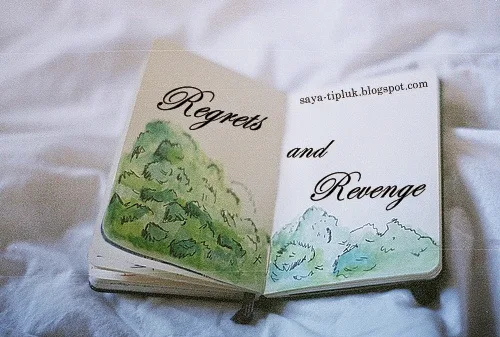 Regrets
saya-tipluk.blogspot.com
and
Revenge